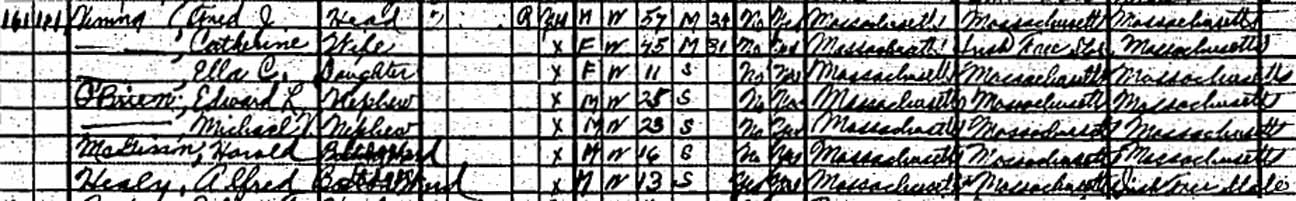 161 181 Fred J Head R M W 57 M 24 No Yes Massachusetts Massachusetts Massachusetts
——, Catherine Wife X F W 45 M 21 No Yes Massachusetts Irish Free State Massachusetts
——, Ella C. Daughter X F W 11 S No Yes Massachusetts Massachusetts Massachusetts
O'Brien, Edward L Nephew X M W 25 S No Yes Massachusetts Massachusetts Massachusetts
——, Michael Nephew X M W 23 S No Yes Massachusetts Massachusetts Massachusetts
Harold X M W 16 S No Yes Massachusetts Massachusetts Massachusetts
Healy, Alfred X M W 13 S Yes Yes Massachusetts Massachusetts Irish Free State